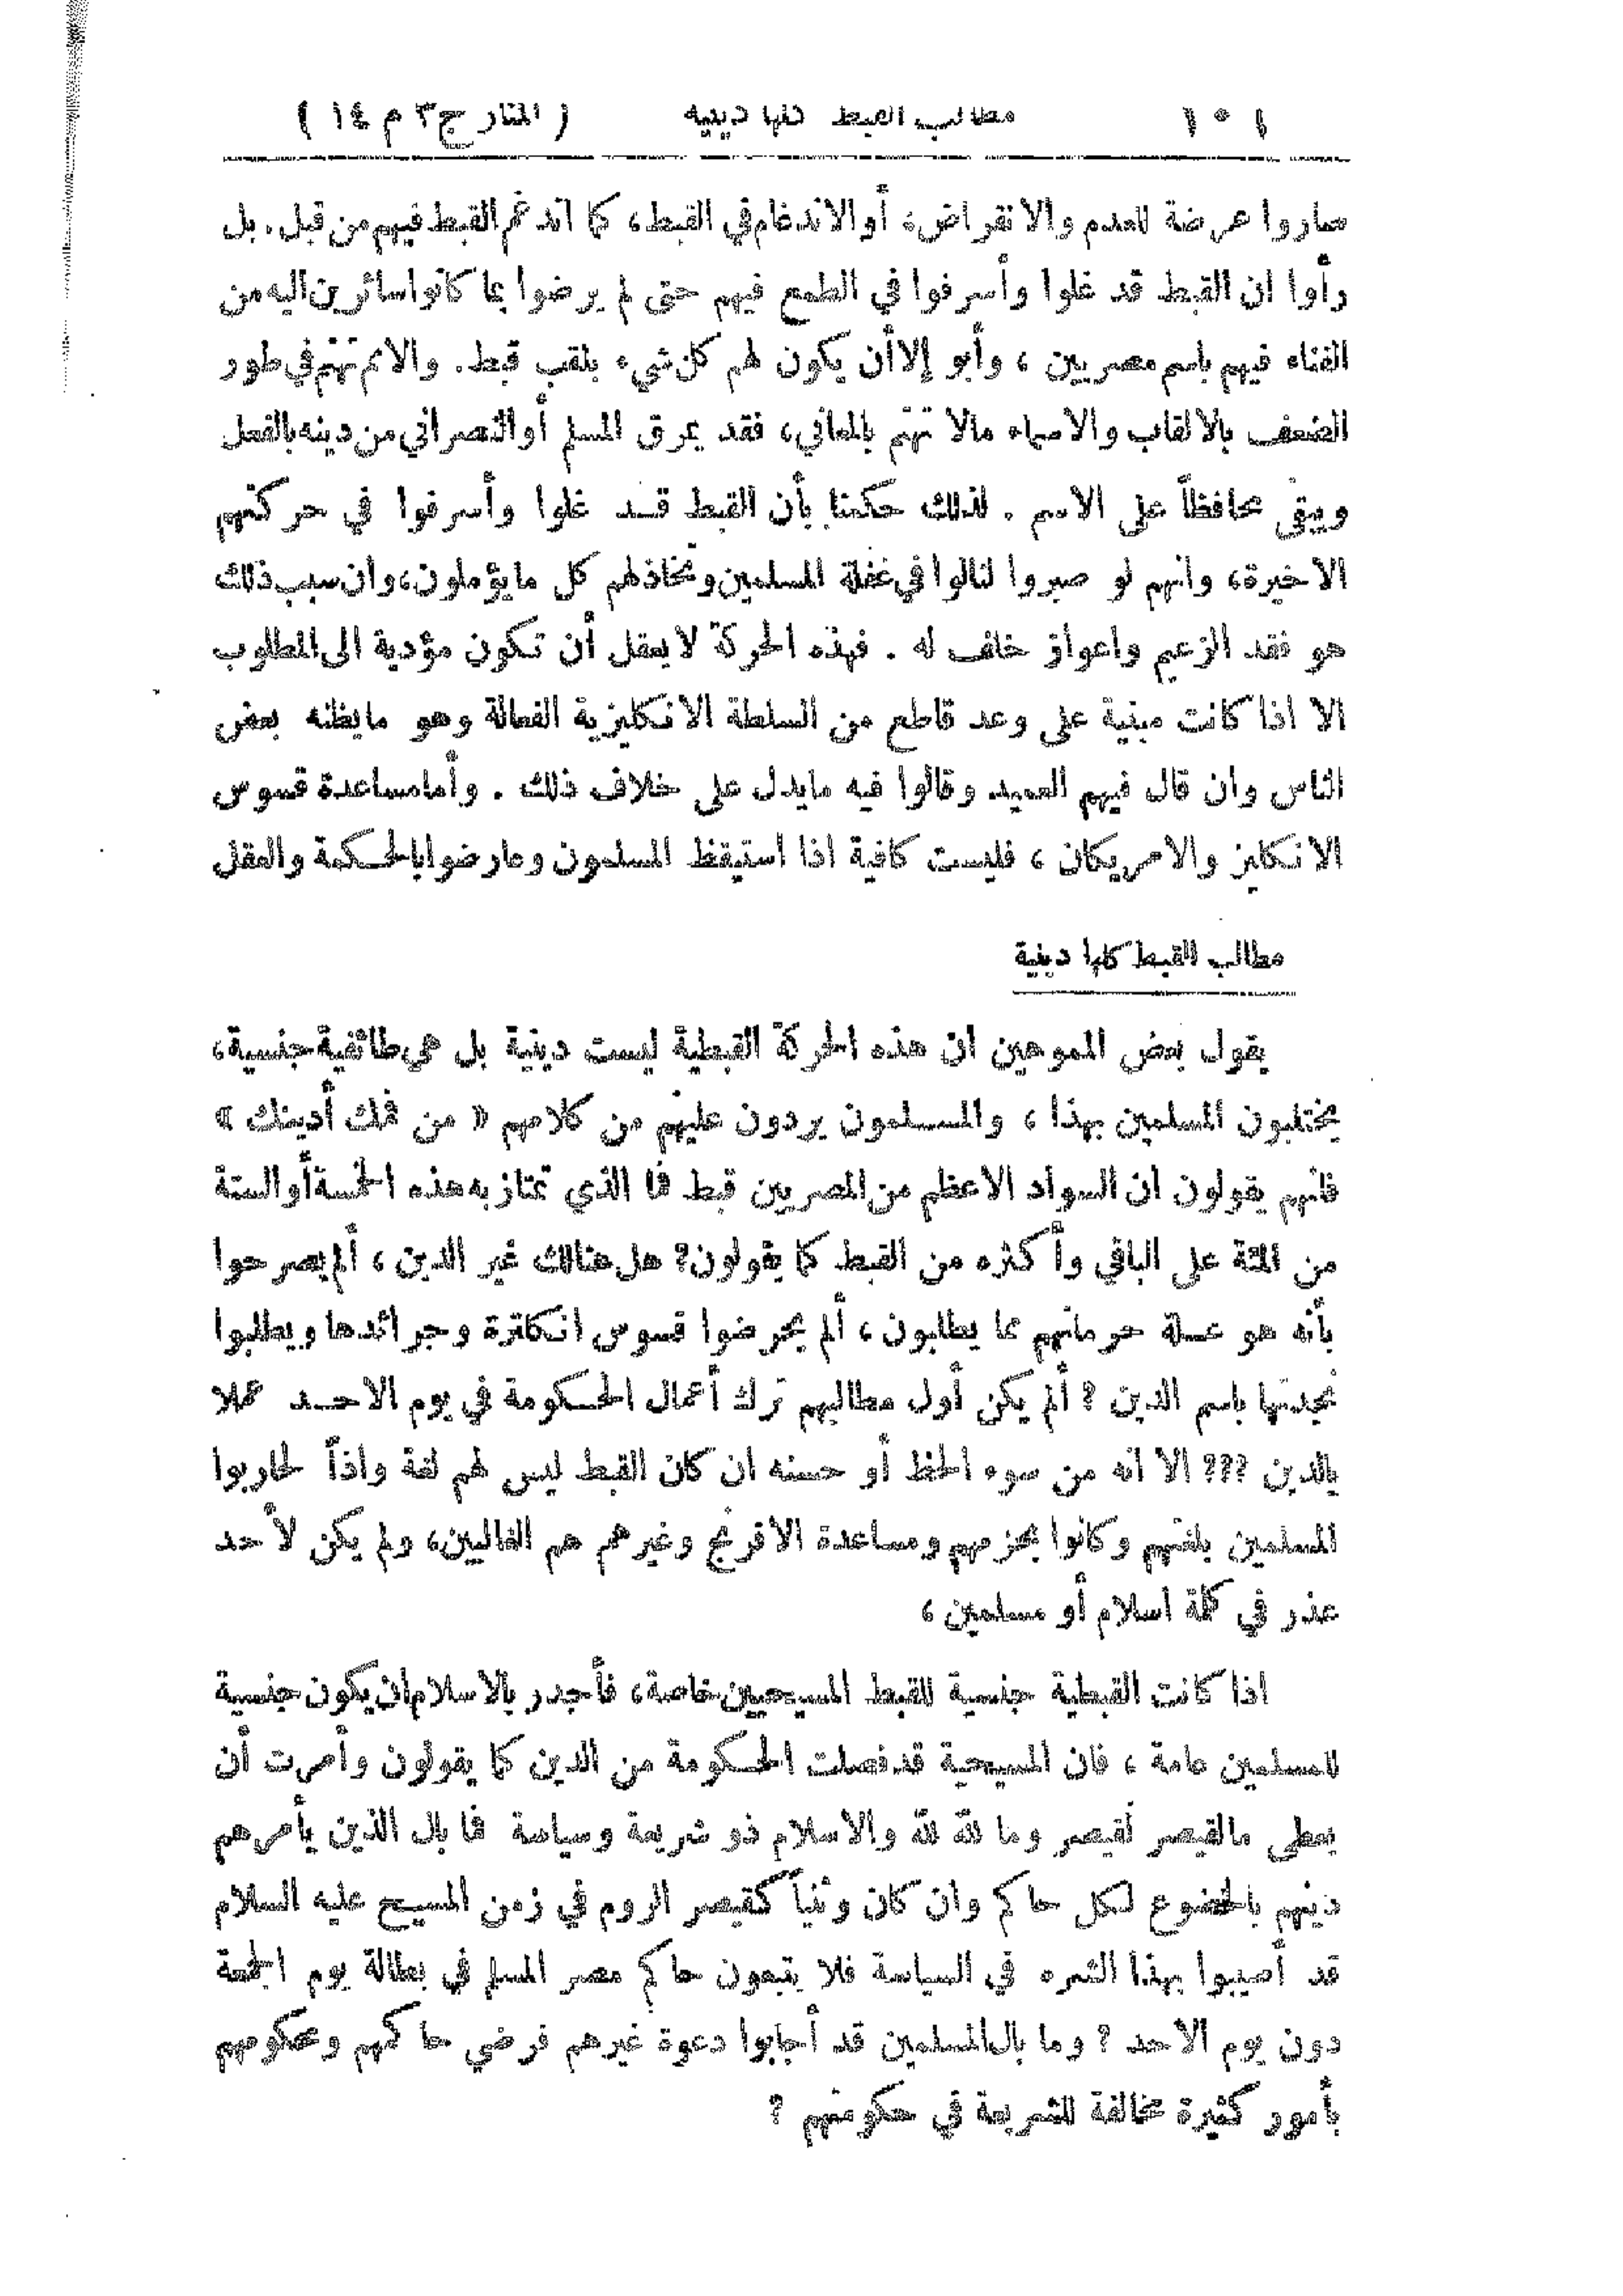 ١٠١ مطالب القبط كلها دينية ( المنار ج ٣ م ١٤ )
صاروا عرضة للعدم والانقراض، أو الاندغام في القبط، كما اندغم القبط فيهم من قبل . بل
رأوا ان القبط قد غلوا وأسرفوا في الطمع فيهم حتى لم يرضوا بما كانوا سائرين اليه من
الفناء فيهم باسم مصريين ، وأبو إلا أن يكون لهم كل شيء بلقب قبط . والامم تهتم في طور
الضعف بالالقاب والاسماء مالا تهتم بالمعاني، فقد يمرق المسلم أو النصراني من دينه بالفعل
ويبقى محافظاً على الاسم . لذلك حكمنا بأن القبط قد غلوا وأسرفوا في حركتهم
الاخيرة، وانهم لو صبروا لنالوا في غفلة المسلمين وتخاذلهم كل ما يؤملون، وان سبب ذلك
هو فقد الزعيم واعواز خلف له . فهذه الحركة لا يعقل أن تكون مؤدية الى المطلوب
الا اذا كانت مبنية على وعد قاطع من السلطة الانكليزية الفعالة وهو مايظنه بعض
الناس وان قال فيهم العميد وقالوا فيه مايدل على خلاف ذلك . وأما مساعدة قسوس
الانكليز والامريكان ، فليست كافية اذا استيقظ المسلمون وعارضوا بالحكمة والعقل
مطالب القبط كلها دينية
يقول بعض المموهين ان هذه الحركة القبطية ليست دينية بل هي طائفية جنسية،
يختلبون المسلمين بهذا ، والمسلمون يردون عليهم من كلامهم « من فمك أدينك »
فانهم يقولون ان السواد الاعظم من المصريين قبط فما الذي تمتاز به هذه الخمسة أو الستة
من المئة على الباقي وأكثره من القبط كما يقولون؟ هل هنالك غير الدين ، ألم يصرحوا
بأنه هو علة حرمانهم مما يطلبون ، ألم يحرضوا قسوس انكلترة وجرائدها ويطلبوا
نجدتها باسم الدين ؟ ألم يكن أول مطالبهم ترك أعمال الحكومة في يوم الاحد عملا
بالدين ؟؟؟ الا انه من سوء الحظ أو حسنه ان كان القبط ليس لهم لغة واذاً لحاربوا
المسلمين بلغتهم وكانوا بحزمهم ومساعدة الافرنج وغيرهم هم الغالبين، ولم يكن لأحد
عذر في كلمة اسلام أو مسلمين ،
اذا كانت القبطية جنسية للقبط المسيحيين خاصة، فأجدر بالاسلام ان يكون جنسية
للمسلمين عامة ، فان المسيحية قد فصلت الحكومة من الدين كما يقولون وأمرت أن
يعطى مالقيصر لقيصر وما لله لله والاسلام ذو شريعة وسياسة فما بال الذين يأمرهم
دينهم بالخضوع لكل حاكم وان كان وثنياً كقيصر الروم في زمن المسيح عليه السلام
قد أصيبوا بهذا الشره في السياسة فلا يتبعون حاكم مصر المسلم في بطالة يوم الجمعة
دون يوم الاحد ؟ وما بال المسلمين قد أجابوا دعوة غيرهم فرضي حاكمهم ومحكومهم
بأمور كثيرة مخالفة للشريعة في حكومتهم ؟